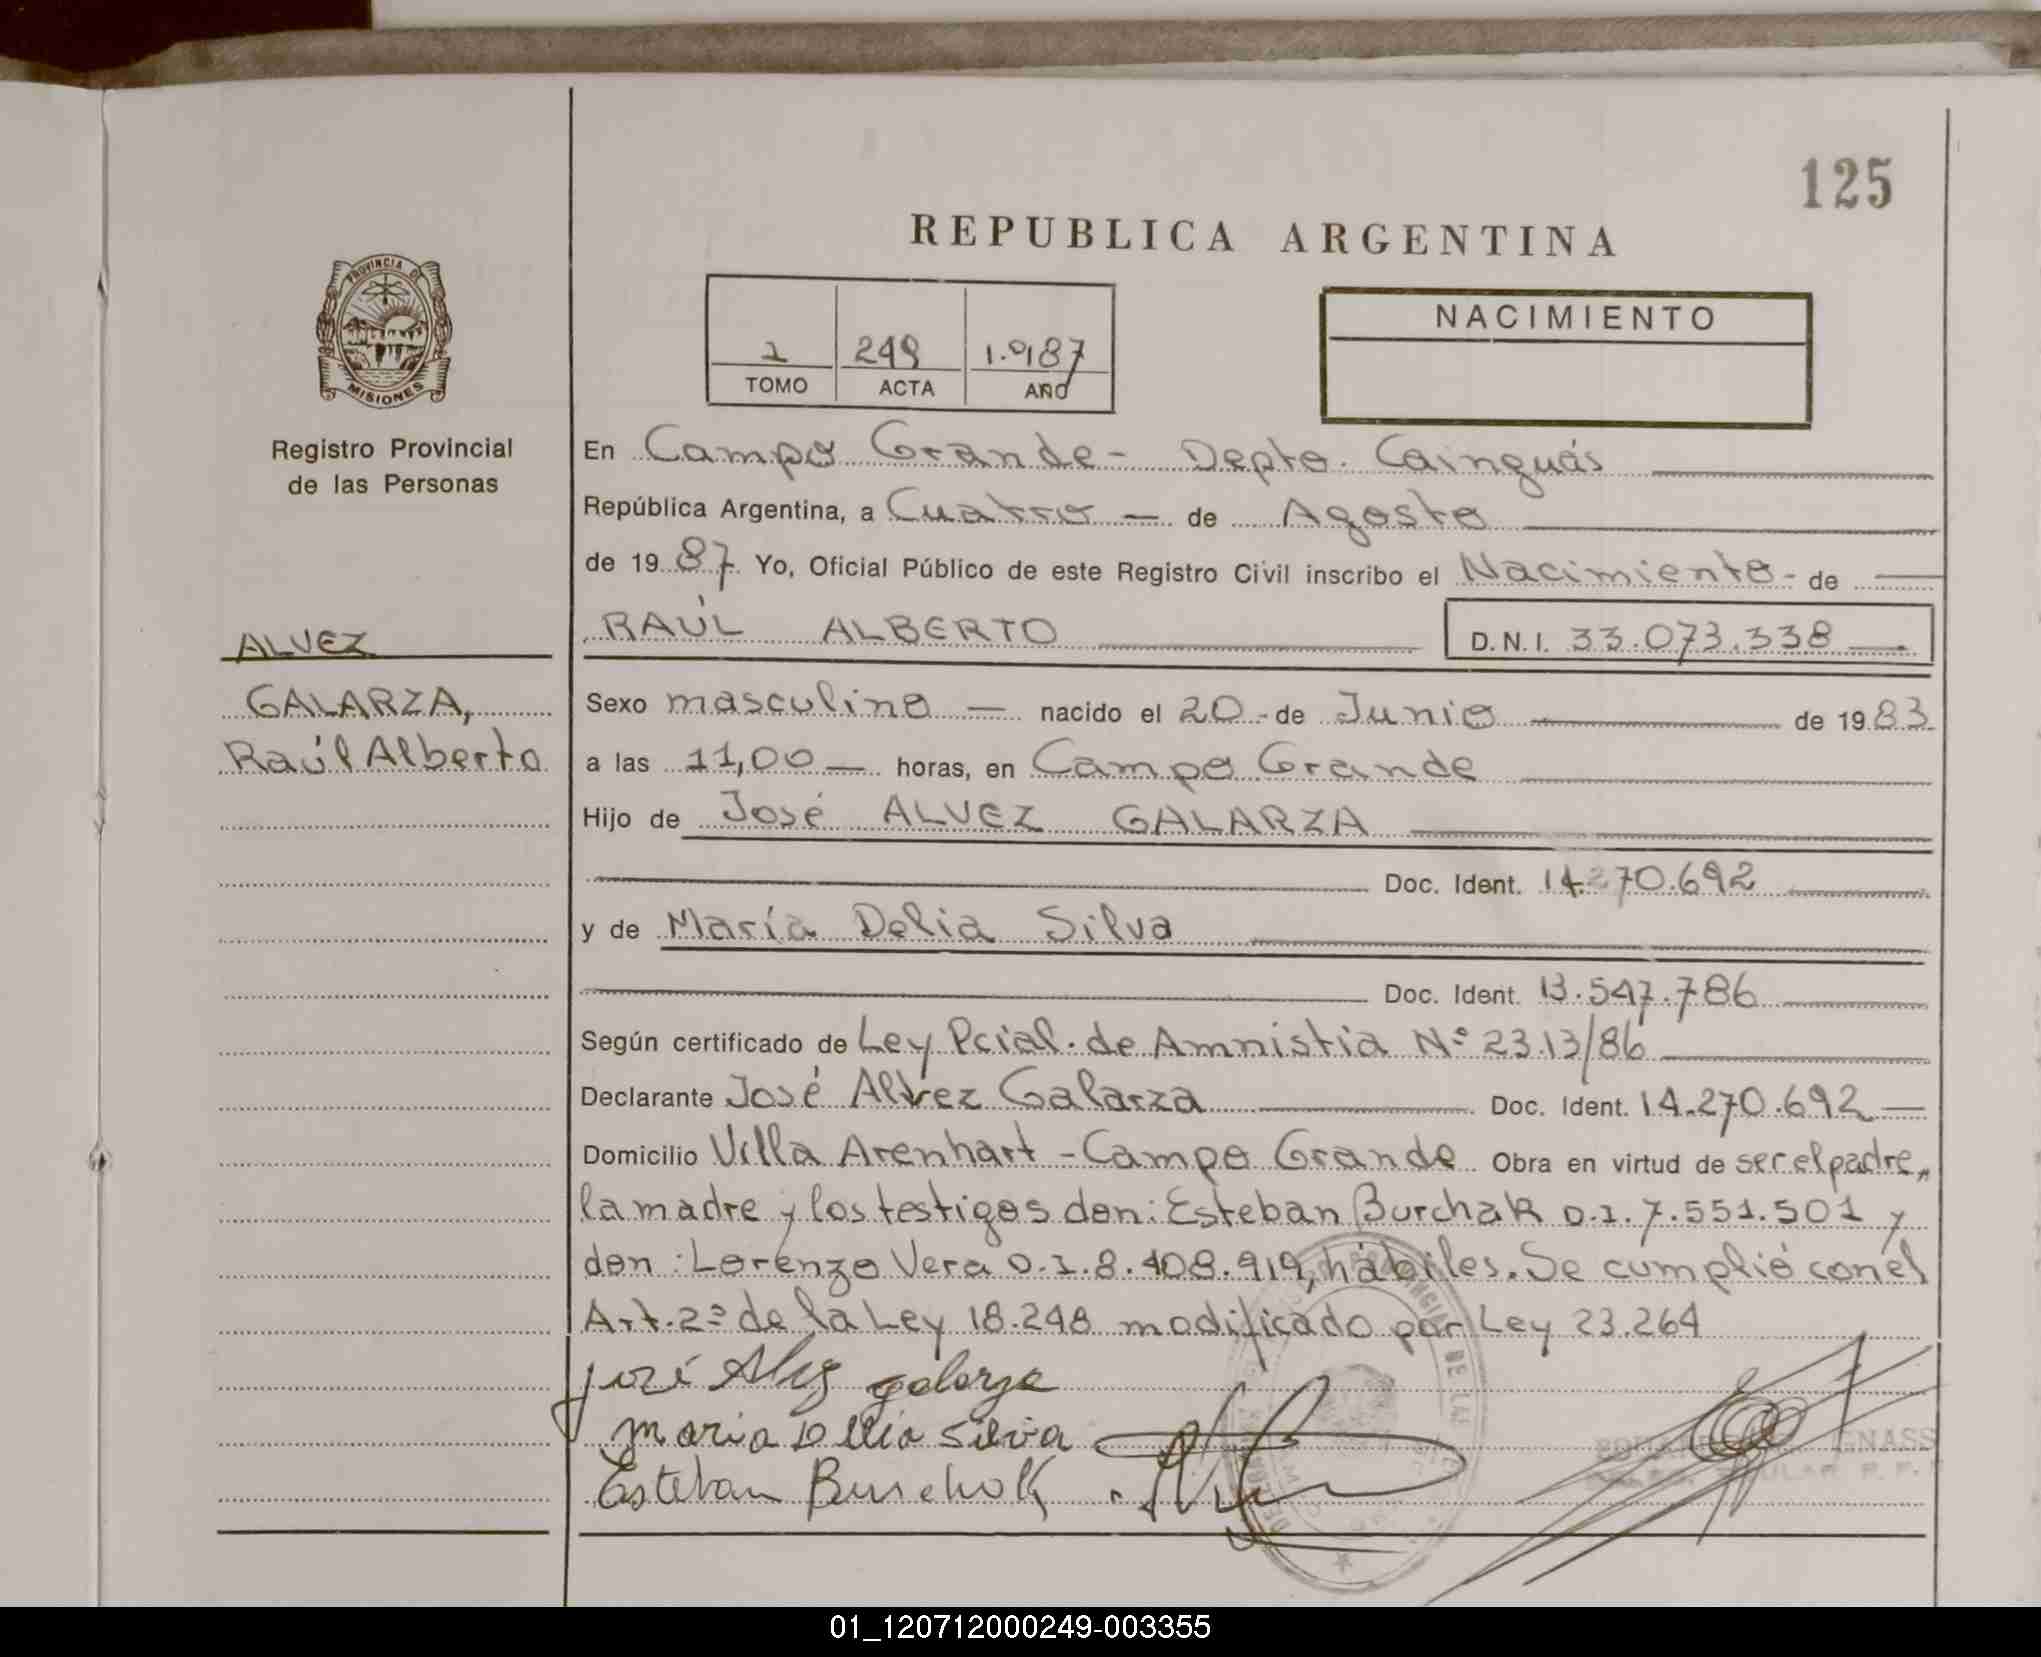 125
REPUBLICA ARGENTINA
PROVINCIA DE
MISIONES
Registro Provincial
de las Personas
1 249 1.987
TOMO ACTA AÑO
NACIMIENTO
En Campo Grande - Depto. Cainguás
República Argentina, a Cuatro — de Agosto
de 1987 Yo, Oficial Público de este Registro Civil inscribo el Nacimiento - de
RAÚL ALBERTO D.N.I. 33.073.338
ALVEZ
GALARZA,
Raúl Alberto
Sexo masculino — nacido el 20 - de Junio de 1983
a las 11,00 — horas, en Campo Grande
Hijo de José ALVEZ GALARZA
Doc. Ident. 14.270.692
y de María Delia Silva
Doc. Ident. 13.547.786
Según certificado de Ley Pcial. de Amnistia Nº 2313/86
Declarante José Alvez Galarza Doc. Ident. 14.270.692 —
Domicilio Villa Arenhart - Campo Grande Obra en virtud de ser el padre,
la madre y los testigos don: Esteban Burchak D.I. 7.551.501 y
don: Lorenzo Vera D.I. 8.408.919, hábiles. Se cumplió con el
Art. 2º de la Ley 18.248 modificado por Ley 23.264
José Alvez galarza
maria Delia Silva
Esteban Burchak
01_120712000249-003355